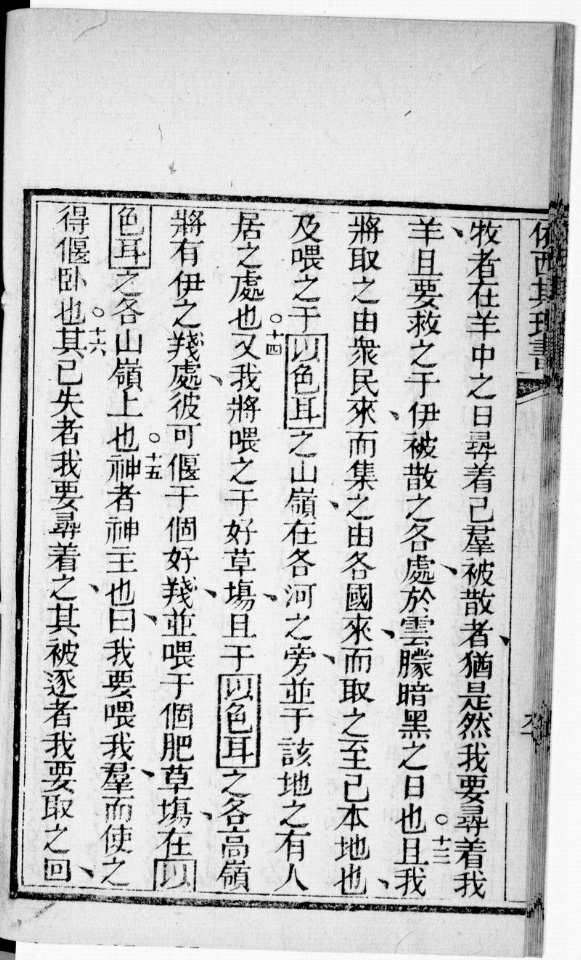 依西其理書
牧者在羊中之日尋着己羣被散者猶是然我要尋着我
羊且要救之于伊被散之各處於雲朦暗黑之日也○十三且我
將取之由衆民來而集之由各國來而取之至己本地也
及喂之于以色耳之山嶺在各河之旁並于該地之有人
居之處也○十四又我將喂之于好草塲且于以色耳之各高嶺
將有伊之羢處彼可偃于個好羢並喂于個肥草塲在以
色耳之各山嶺上也○十五神者神主也曰我要喂我羣而使之
得偃卧也○十六其已失者我要尋着之其被逐者我要取之回